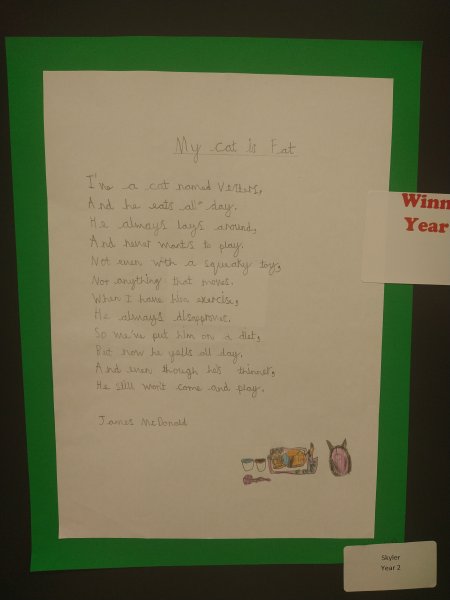 My cat is Fat
I've a cat named Vesters,
And he eats all day.
He always lays around,
And never wants to play.
Not even with a squeaky toy,
Nor anything that moves.
When I have him exercise,
He always disapproves.
So we've put him on a diet,
But now he yells all day.
And even though he's thinner,
He still won't come and play.
James McDonald
Winn
Year
Skyler
Year 2